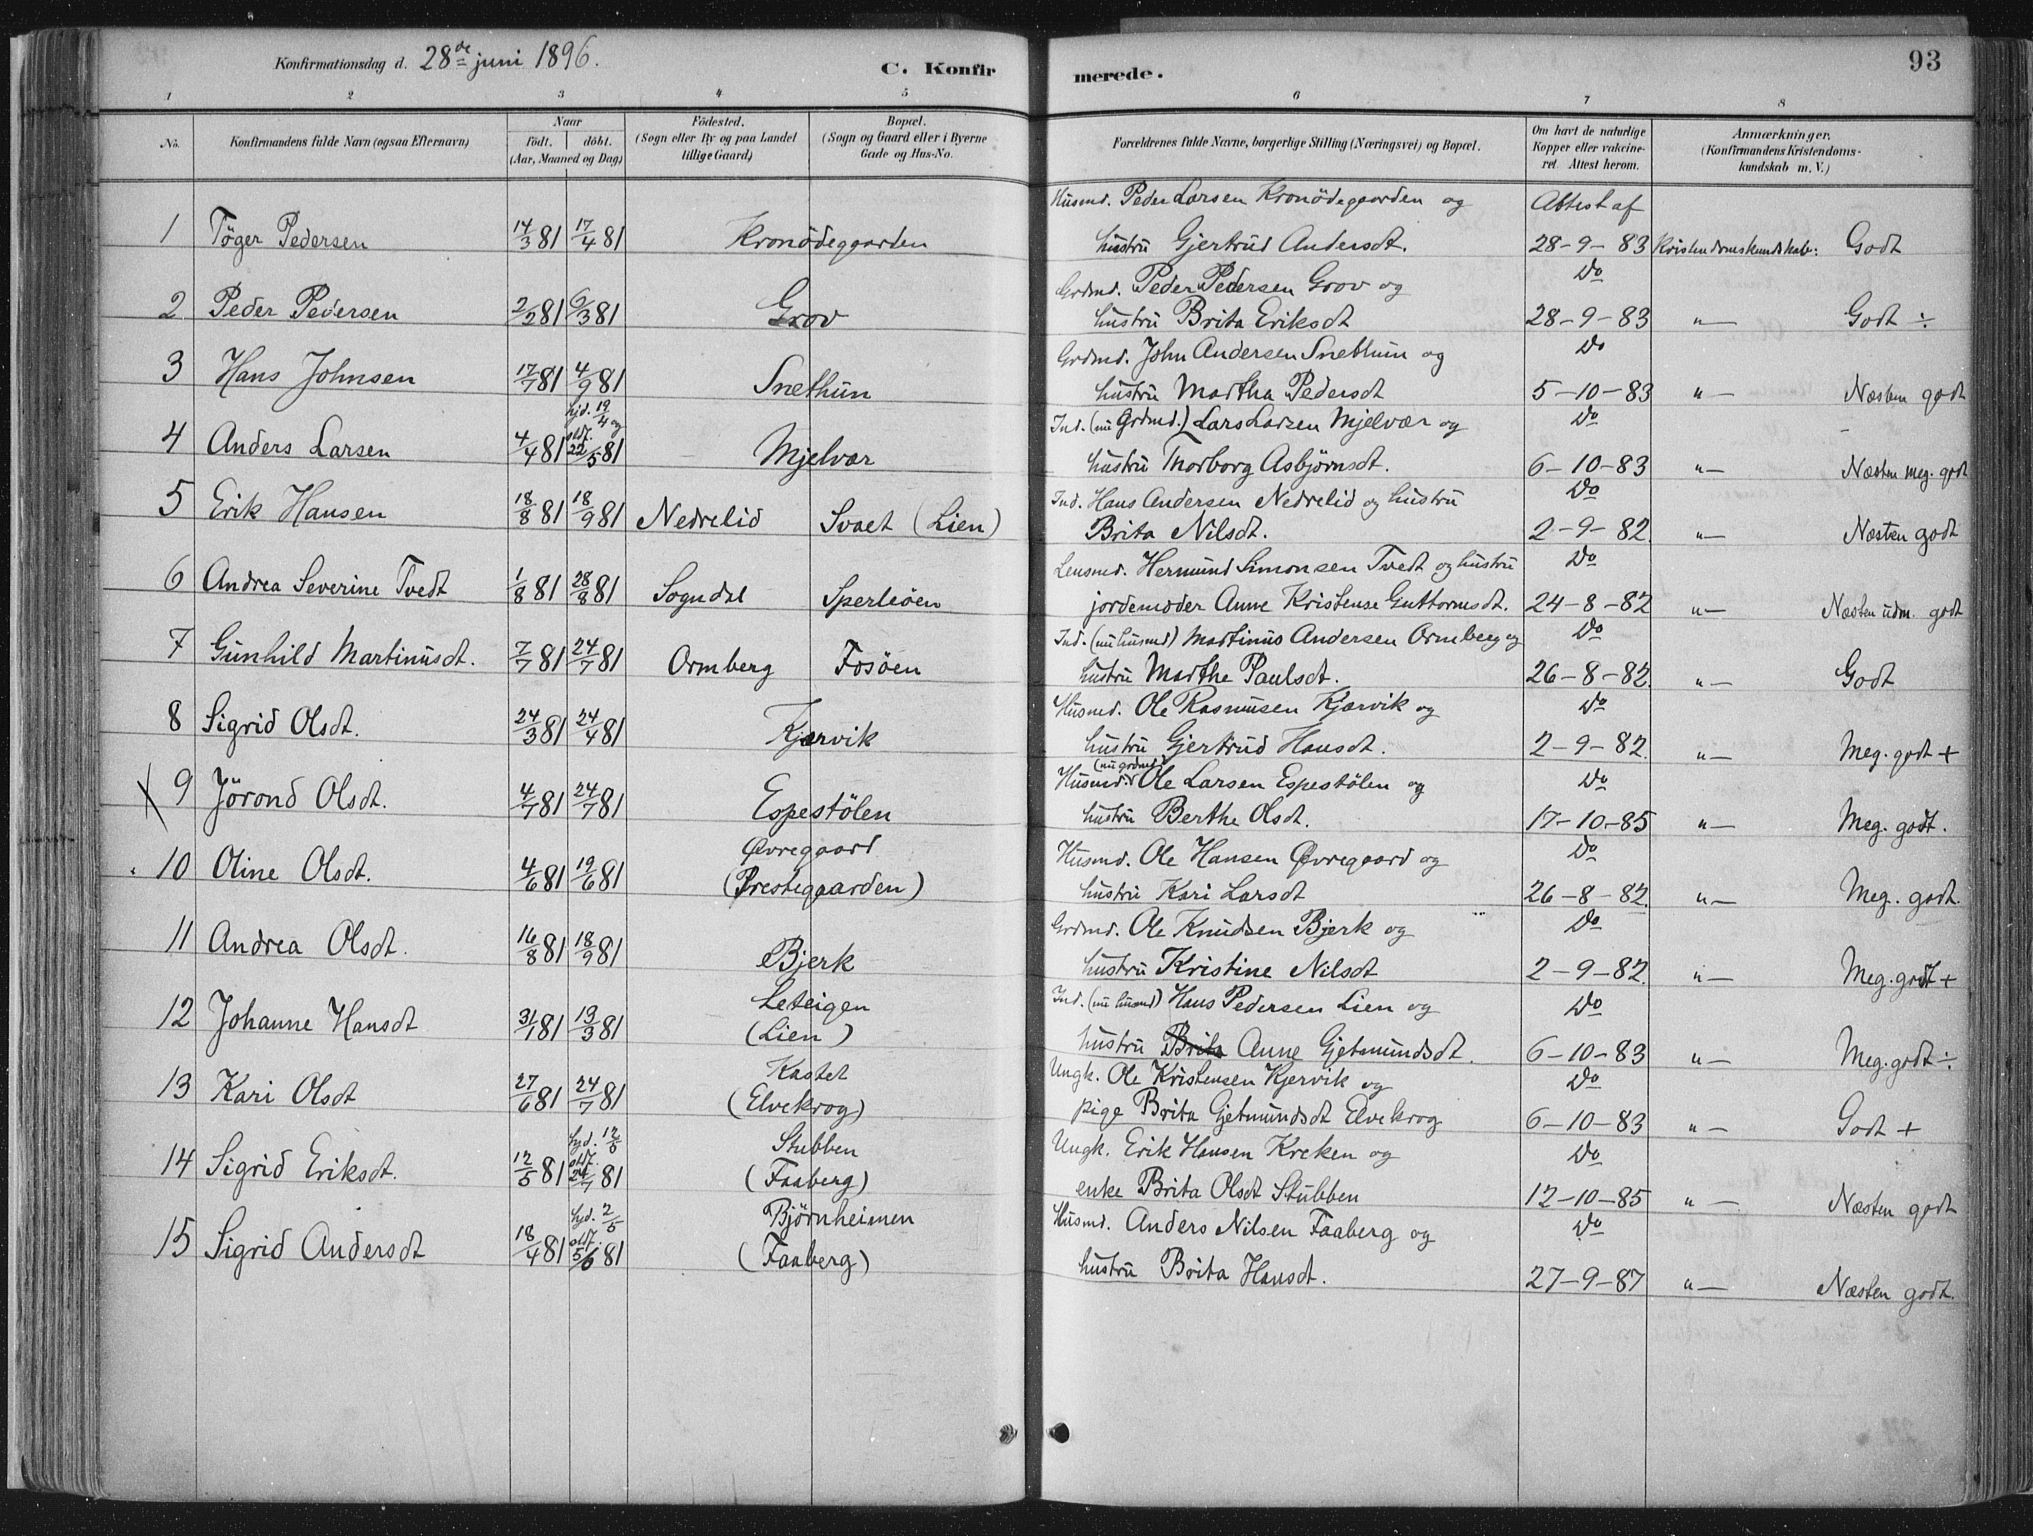 Konfirmationsdag d. 28de juni 1896.
C. Konfir
merede.
93
1 2 3 4 5 6 7 8
No.
Konfirmandens fulde Navn (ogsaa Efternavn)
Naar
födt. döbt.
(Aar, Maaned og Dag)
Födested.
(Sogn eller By og paa Landet
lillige Gaard)
Bopæl.
(Sogn og Gaard eller i Byerne
Gade og Hus-No.
Forældrenes fulde Navne, borgerlige Stilling (Næringsvei) og Bopæl.
Om havt de naturlige
Kopper eller vakcine-
ret. Attest herom.
Anmærkninger.
(Konfirmandens Kristendoms-
kundskab m. V.)
Husmd. Peder Larsen Kronödegaarden og Attest af
1 Töger Pedersen 14/3 81 17/4 81 Kronödegaarden hustru Gjertrud Andersdt. 28-9-83 Kristendomskundskab: Godt
Grdmd. Peder Pedersen Grov og Do
2 Peder Pedersen 2/2 81 6/3 81 Grov hustru Brita Eriksdt 28-9-83 "— Godt ÷
Grdmd. John Andersen Snethun og Do
3 Hans Johnsen 17/7 81 4/9 81 Snethun hustru Martha Pedersdt 5-10-83 "— Næsten godt
hjd. 19/4 og Ind. (nu Grdmd.) Lars Larsen Mjelvær og Do
4 Anders Larsen 4/4 81 stdf. 22/5 81 Mjelvær hustru Thorborg Asbjørnsdt. 6-10-83 "— Næsten meg. godt
Ind. Hans Andersen Nedrelid og hustru Do
5 Erik Hansen 18/8 81 18/9 81 Nedrelid Svaet (Lien) Brita Nilsdt. 2-9-82. "— Næsten godt
Lensmd. Hermund Simonsen Tvedt og hustru Do
6 Andrea Severine Tvedt 1/8 81 28/8 81 Sogndal Sperleöen jordemoder Anne Kristense Guttormsdt. 24-8-82 "— Næsten udm. godt
Ind. (nu husmd) Martinus Andersen Ormberg og Do
7 Gunhild Martinusdt. 7/7 81 24/7 81 Ormberg Fosöen hustru Marthe Paulsdt. 26-8-82. "— Godt
Husmd. Ole Rasmusen Kjærvik og Do
8 Sigrid Olsdt. 24/3 81 24/4 81 Kjærvik hustru Gjertrud Hansdt. 2-9-82. "— Meg. godt +
(nu grdmd)
Husmd. Ole Larsen Espestölen og Do
9 Jörond Olsdt. 4/7 81 24/7 81 Espestölen hustru Berthe Olsdt. 17-10-85 "— Meg. godt.
Øvregaard Husmd. Ole Hansen Øvregaard og Do
10 Oline Olsdt. 4/6 81 19/6 81 (Prestegaarden) hustru Kari Larsdt 26-8-82. "— Meg. godt.
Grdmd. Ole Knudsen Bjerk og Do
11 Andrea Olsdt. 16/8 81 18/9 81 Bjerk hustru Kristine Nilsdt 2-9-82. "— Meg. godt +
Leteigen Ind. (nu husmd) Hans Pedersen Lien og Do
12 Johanne Hansdt 31/1 81 13/3 81 (Lien) hustru Brita Anne Gjetmundsdt. 6-10-83 "— Meg. godt ÷
Kastet Ungk. Ole Kristensen Kjervik og Do
13 Kari Olsdt 27/6 81 24/7 81 (Elvekrog) pige Brita Gjetmundsdt Elvekrog 6-10-83 "— Godt +
hjd. 12/5 Stubben Ungk. Erik Hansen Kreken og Do
14 Sigrid Eriksdt. 12/5 81 stdf. 24/7 81 (Faaberg) enke Brita Olsdt Stubben 12-10-85 "— Næsten godt
hjd. 2/5 Bjørnheimen Husmd. Anders Nilsen Faaberg og Do
15 Sigrid Andersdt 18/4 81 stdf. 5/6 81 (Faaberg) hustru Brita Hansdt. 27-9-87 "— Næsten godt.